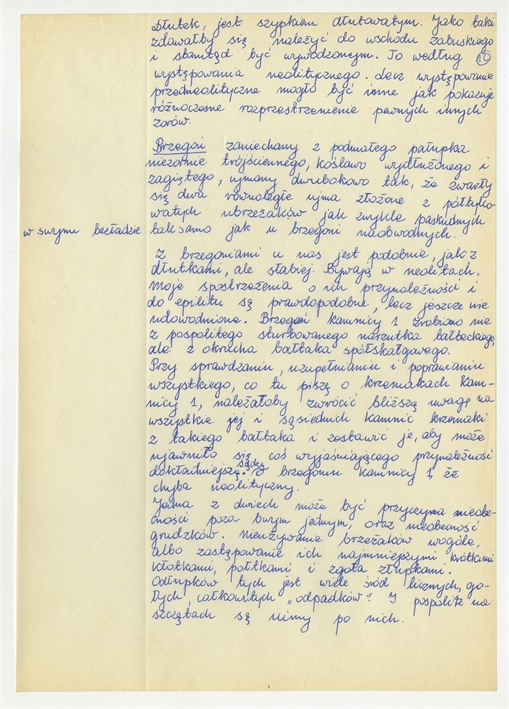 Dłutek, jest szypkiem dłutowatym. Jako taki
zdawałby się należyć do wschodu zabuskiego
i stamtąd być wywodzonym. To według 10
występowania neolitycznego. Lecz występowanie
przedneolityczne mogło być inne jak pokazuje
różnoczesne rozprzestrzenienie pewnych innych
zorów.
Brzegoń zaniechamy z podmałego pałupka
niezornie trójściennego, koślawo wydłużonego i
zagiętego, ujmany dwubokowo tak, że zwarły
się dwa równoległe ujma złożone z półtylco-
watych ubrzeżaków jak zwykle paskudnych
w swymi bezładzie tak samo jak u brzegoni naobwodnych.
Z brzegoniami u nas jest podobnie, jak z
dłutkami, ale słabiej. Bywają w neolitach.
Moje spostrzeżenia o ich przynależności i
do epilitu są prawdopodobne, lecz jeszcze nie
udowodnione. Brzegoń kamnicy 1 zrobiono nie
z pospolitego sturbowanego narzutka bałtockiego,
ale z okrucha bałtaka spółskałgowego.
Przy sprawdzaniu, uzupełnianiu i poprawianiu
wszystkiego, co tu piszą o krzemakach kam-
nicy 1, należałoby zwrócić bliższą uwagę na
wszystkie jej i sąsiednich kamnic krzemaki
z takiego bałtaka i zestawić je, aby może
ujawniło się coś wyjaśniającego przynależność
dokładniejszą. Sądzę o brzegoniu kamnicy 1, że
chyba neolityczny.
Jedna z dwiech może być przyczyna nieobe-
cności poza burym jednym, oraz nieobecność
grudzków. Nieużywanie brzeżaków wogóle,
albo zastępowanie ich najmniejszymi krótkami
kłotkami, połtkami i zgoła złupkami.
Odłupków tych jest wiele śród licznych, go-
łych, całkowitych „odpadków". I pospolite na
szczętach są nimy po nich.